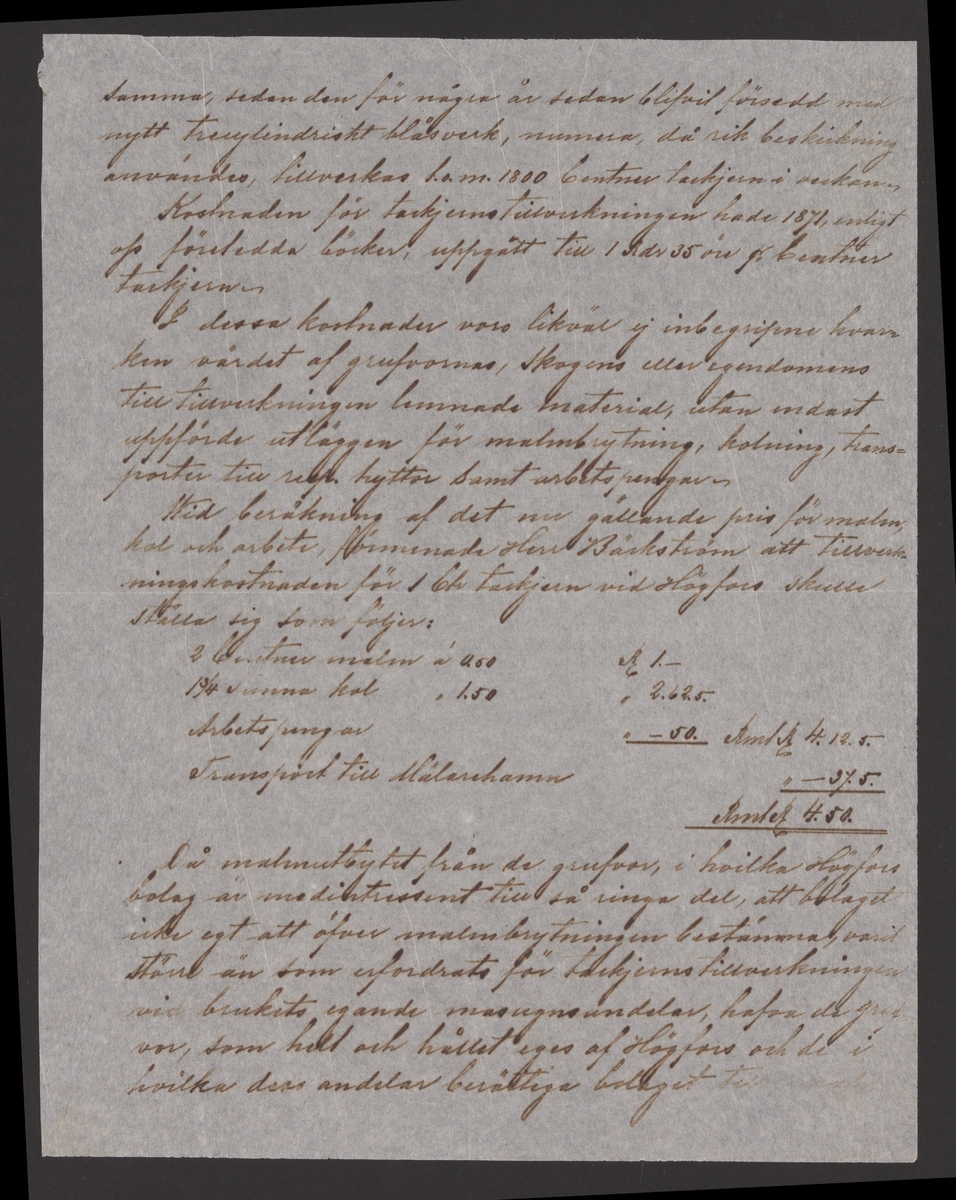 samma, sedan den för några år sedan blifvit försedd med
nytt trecylindriskt blåsverk, numera, då rik beskickning
användes, tillverkas t.o.m. 1800 Centner tackjern i veckan.
Kostnaden för tackjernstillverkningen hade 1871, enligt
oss företedda böcker, uppgått till 1 Rdr 35 öre pr Centner
tackjern.
I dessa kostnader voro likväl ej inbegripne hvar-
ken värdet af grufvornas, Skogens eller egendomens
till tillverkningen lemnade material, utan endast
uppförde utläggen för malmbrytning, kolning, trans=
porter till resp. hyttor samt arbetspengar.
Wid beräkning af det nu gällande pris för malm,
kol och arbete, förmenade Herr Bäckström att tillverk-
ningskostnaden för 1 Ctr tackjern vid Högfors skulle
ställa sig som följer:
2 Centner malm á 0.50 R 1.—
1 3/4 tunna kol " 1.50 " 2.62.5.
Arbetspengar " — 50. RmtR 4.12.5.
Transport till Mälarehamn " — 37.5.
RmtR 4.50.
Då malmutbytet från de grufvor, i hvilka Högfors
bolag är medintressent till så ringa del, att bolaget
icke egt att öfver malmbrytningen bestämma, varit
större än som erfordrats för tackjernstillverkningen
vid brukets egande masugnsandelar, hafva de gruf
vor, som helt och hållet eges af Högfors och de i
hvilka dess andelar berättiga bolaget